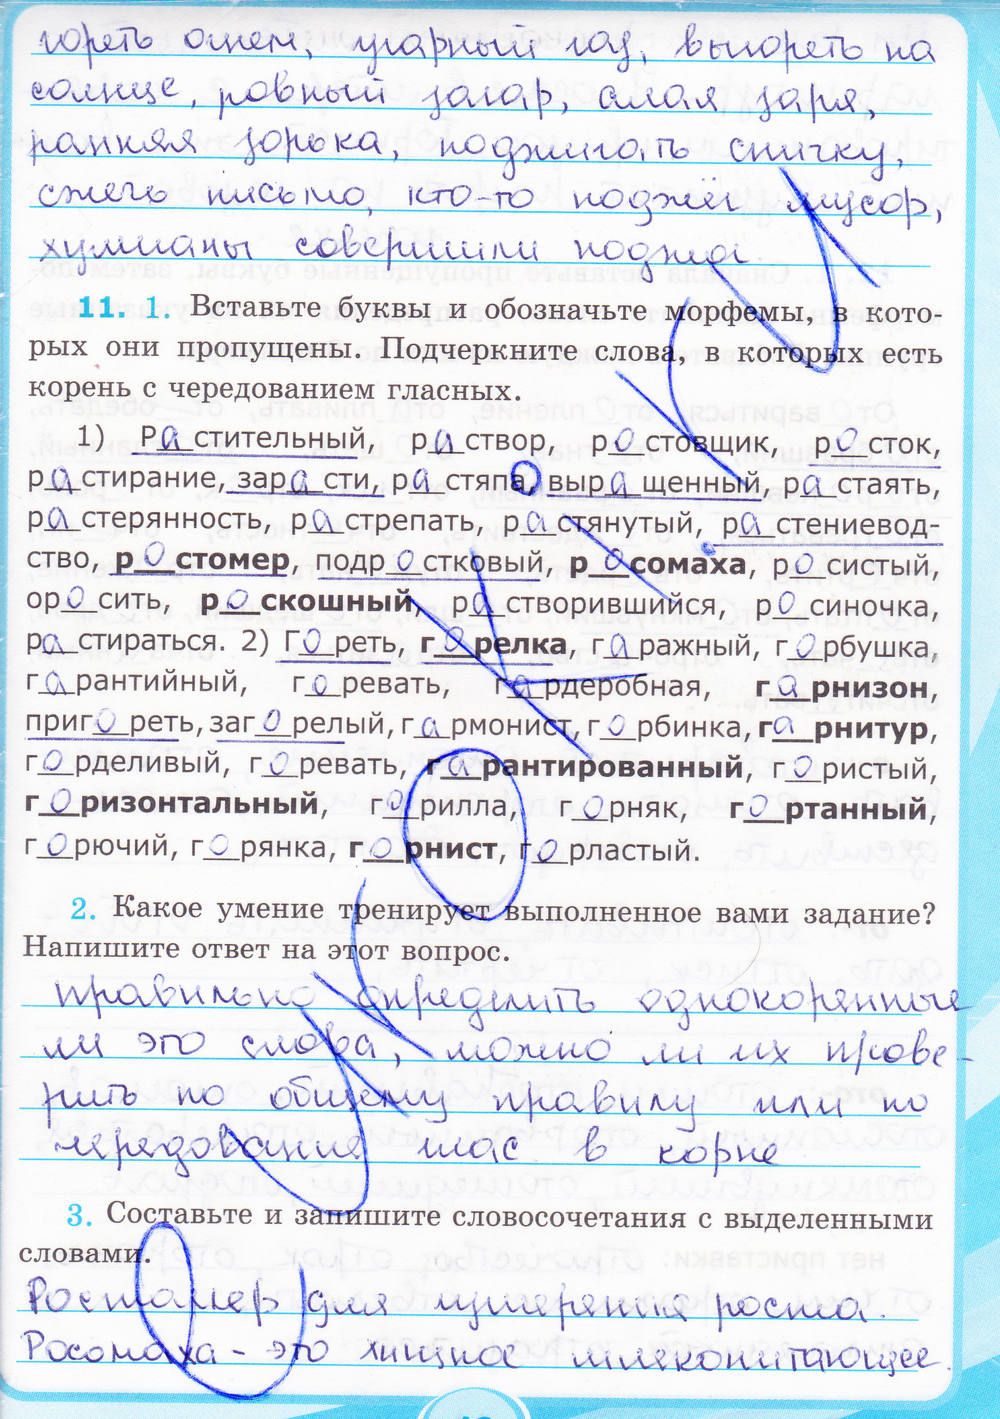 гореть огнем, угарный газ, выгореть на
солнце, ровный загар, алая заря,
ранняя зорька, поджигать спичку,
сжечь письмо, кто-то поджёг мусор,
хулиганы совершили поджог
11. 1. Вставьте буквы и обозначьте морфемы, в кото-
рых они пропущены. Подчеркните слова, в которых есть
корень с чередованием гласных.
1) Растительный, раствор, ростовщик, росток,
растирание, зарасти, растяпа, выращенный, растаять,
растерянность, растрепать, растянутый, растениевод-
ство, ростомер, подростковый, росомаха, росистый,
оросить, роскошный, растворившийся, росиночка,
растираться. 2) Гореть, горелка, гаражный, горбушка,
гарантийный, горевать, гардеробная, гарнизон,
пригореть, загорелый, гармонист, горбинка, гарнитур,
горделивый, горевать, гарантированный, гористый,
горизонтальный, горилла, горняк, гортанный,
горючий, горянка, горнист, горластый.
2. Какое умение тренирует выполненное вами задание?
Напишите ответ на этот вопрос.
правильно определить однокоренные
ли это слова, можно ли их прове-
рить по общему правилу или по
чередование глас в корне
3. Составьте и запишите словосочетания с выделенными
словами.
Ростомер для измерения роста.
Росомаха - это хищное млекопитающее.